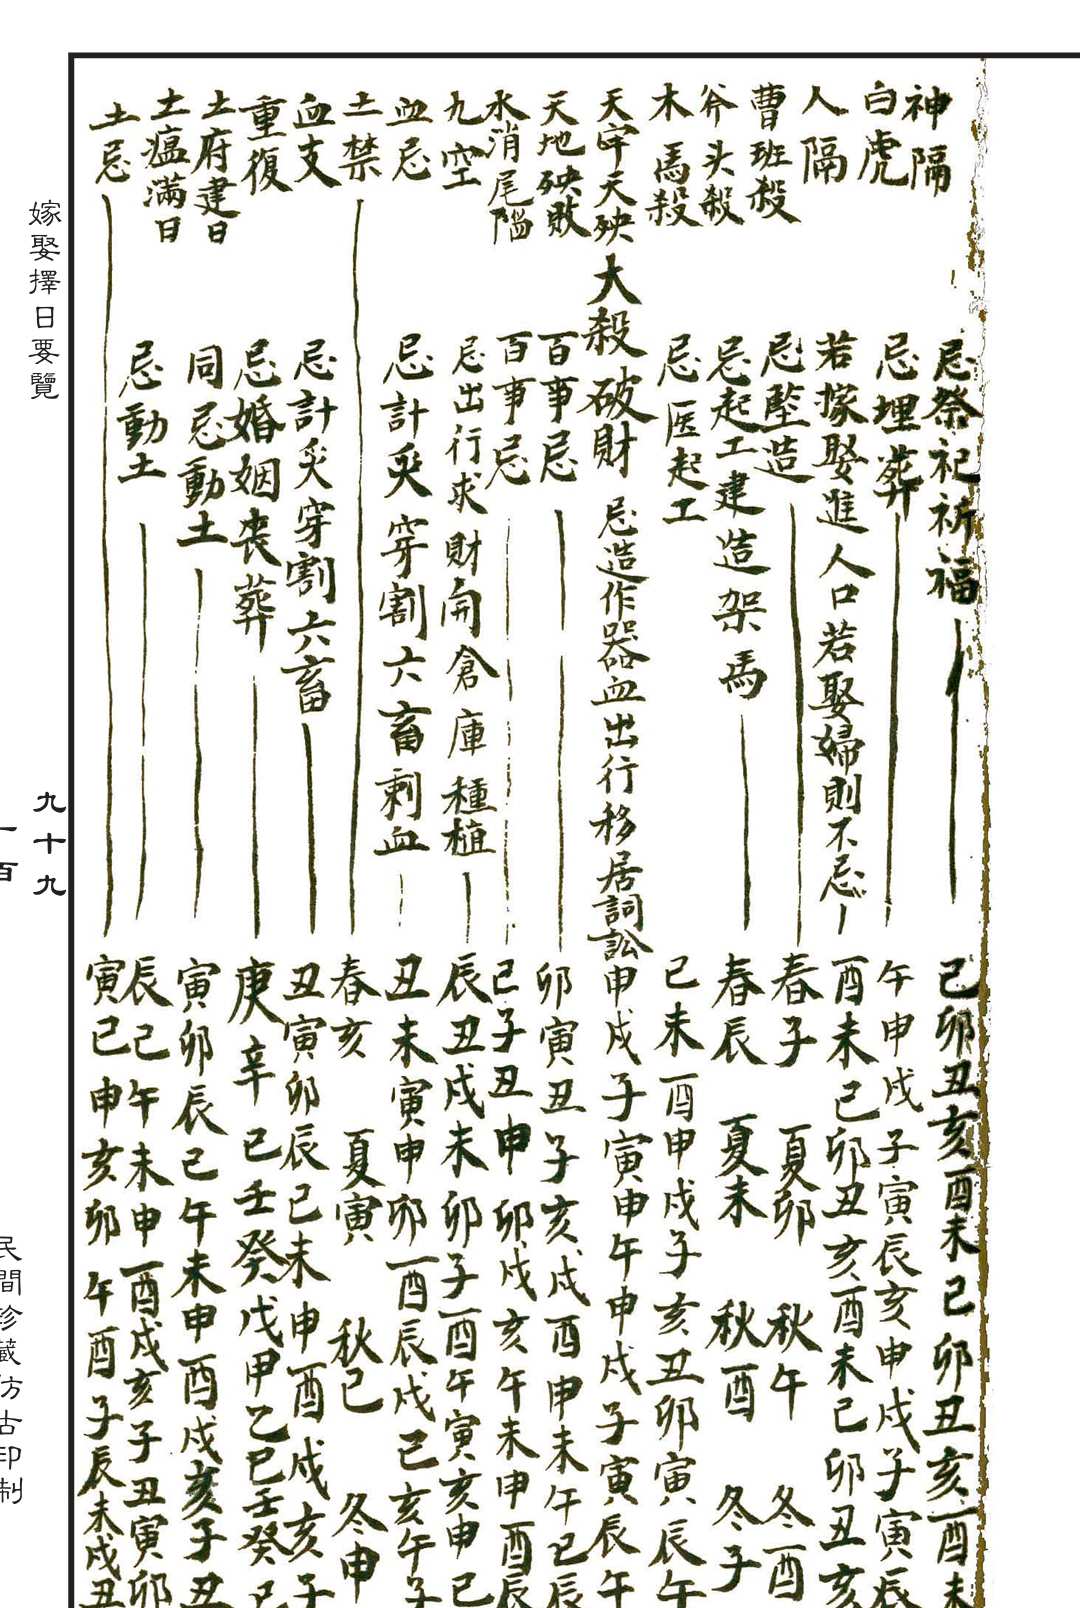 神隔 忌祭祀祈福 巳卯丑亥酉未巳卯丑亥酉未
白虎 忌埋葬 午申戌子寅辰亥申戌子寅辰
人隔 若嫁娶進人口若娶婦則不忌 酉未巳卯丑亥酉未巳卯丑亥
曹班殺 忌竪造 春子 夏卯 秋午 冬酉
斧头殺 忌起工建造架馬 春辰 夏未 秋酉 冬子
木馬殺 忌医起工 巳未酉申戌子亥丑卯寅辰午
天牢天殃大殺破財 忌造作器血出行移居詞訟 申戌子寅申午申戌子寅辰午
天地殃敗 百事忌 卯寅丑子亥戌酉申未午巳辰
水消尾 百事忌 巳子丑申卯戌亥午未申酉辰
九空 忌出行求財開倉庫種植 辰丑戌未卯子酉午寅亥申巳
血忌 忌計炙穿割六畜刺血 丑未寅申卯酉辰戌巳亥午子
土禁 春亥 夏寅 秋巳 冬申
血支 忌計炙穿割六畜 丑寅卯辰巳未申酉戌亥子
重復 忌婚姻喪葬 庚辛巳壬癸戊甲乙巳壬癸己
土府建日 同忌動土 寅卯辰巳午未申酉戌亥子丑
土瘟滿日 忌動土 辰巳午未申酉戌亥子丑寅卯
土忌 寅巳申亥卯午酉子辰未戌丑
嫁娶擇日要覽
九十九
一百
民間珍藏仿古印制